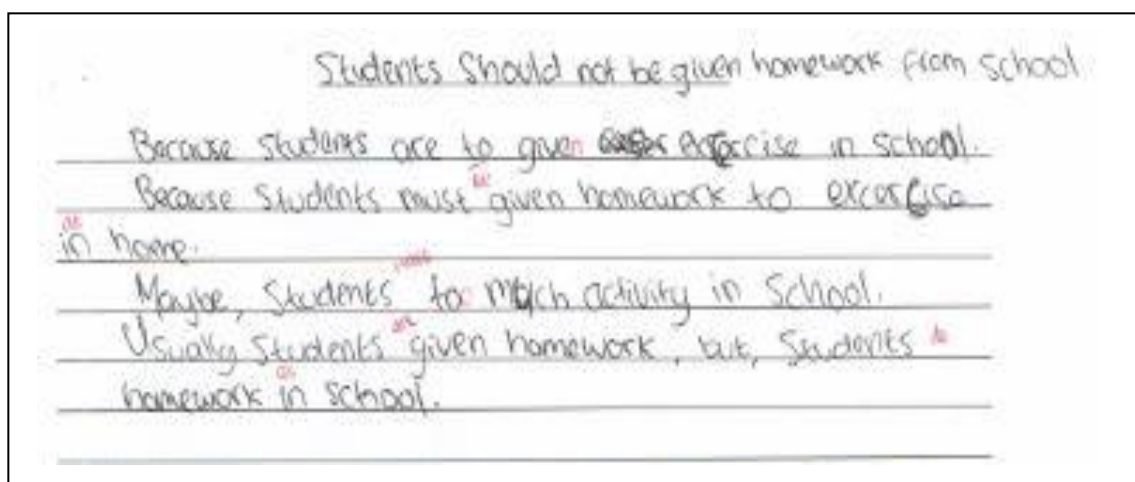 Students Should not be given homework from school
Because students are to given exercise in school.
be
Because students must given homework to excercise
at
in home.
Maybe, Students to much activity in School.
are
Usually Students given homework, but, Students do
at
homework in school.